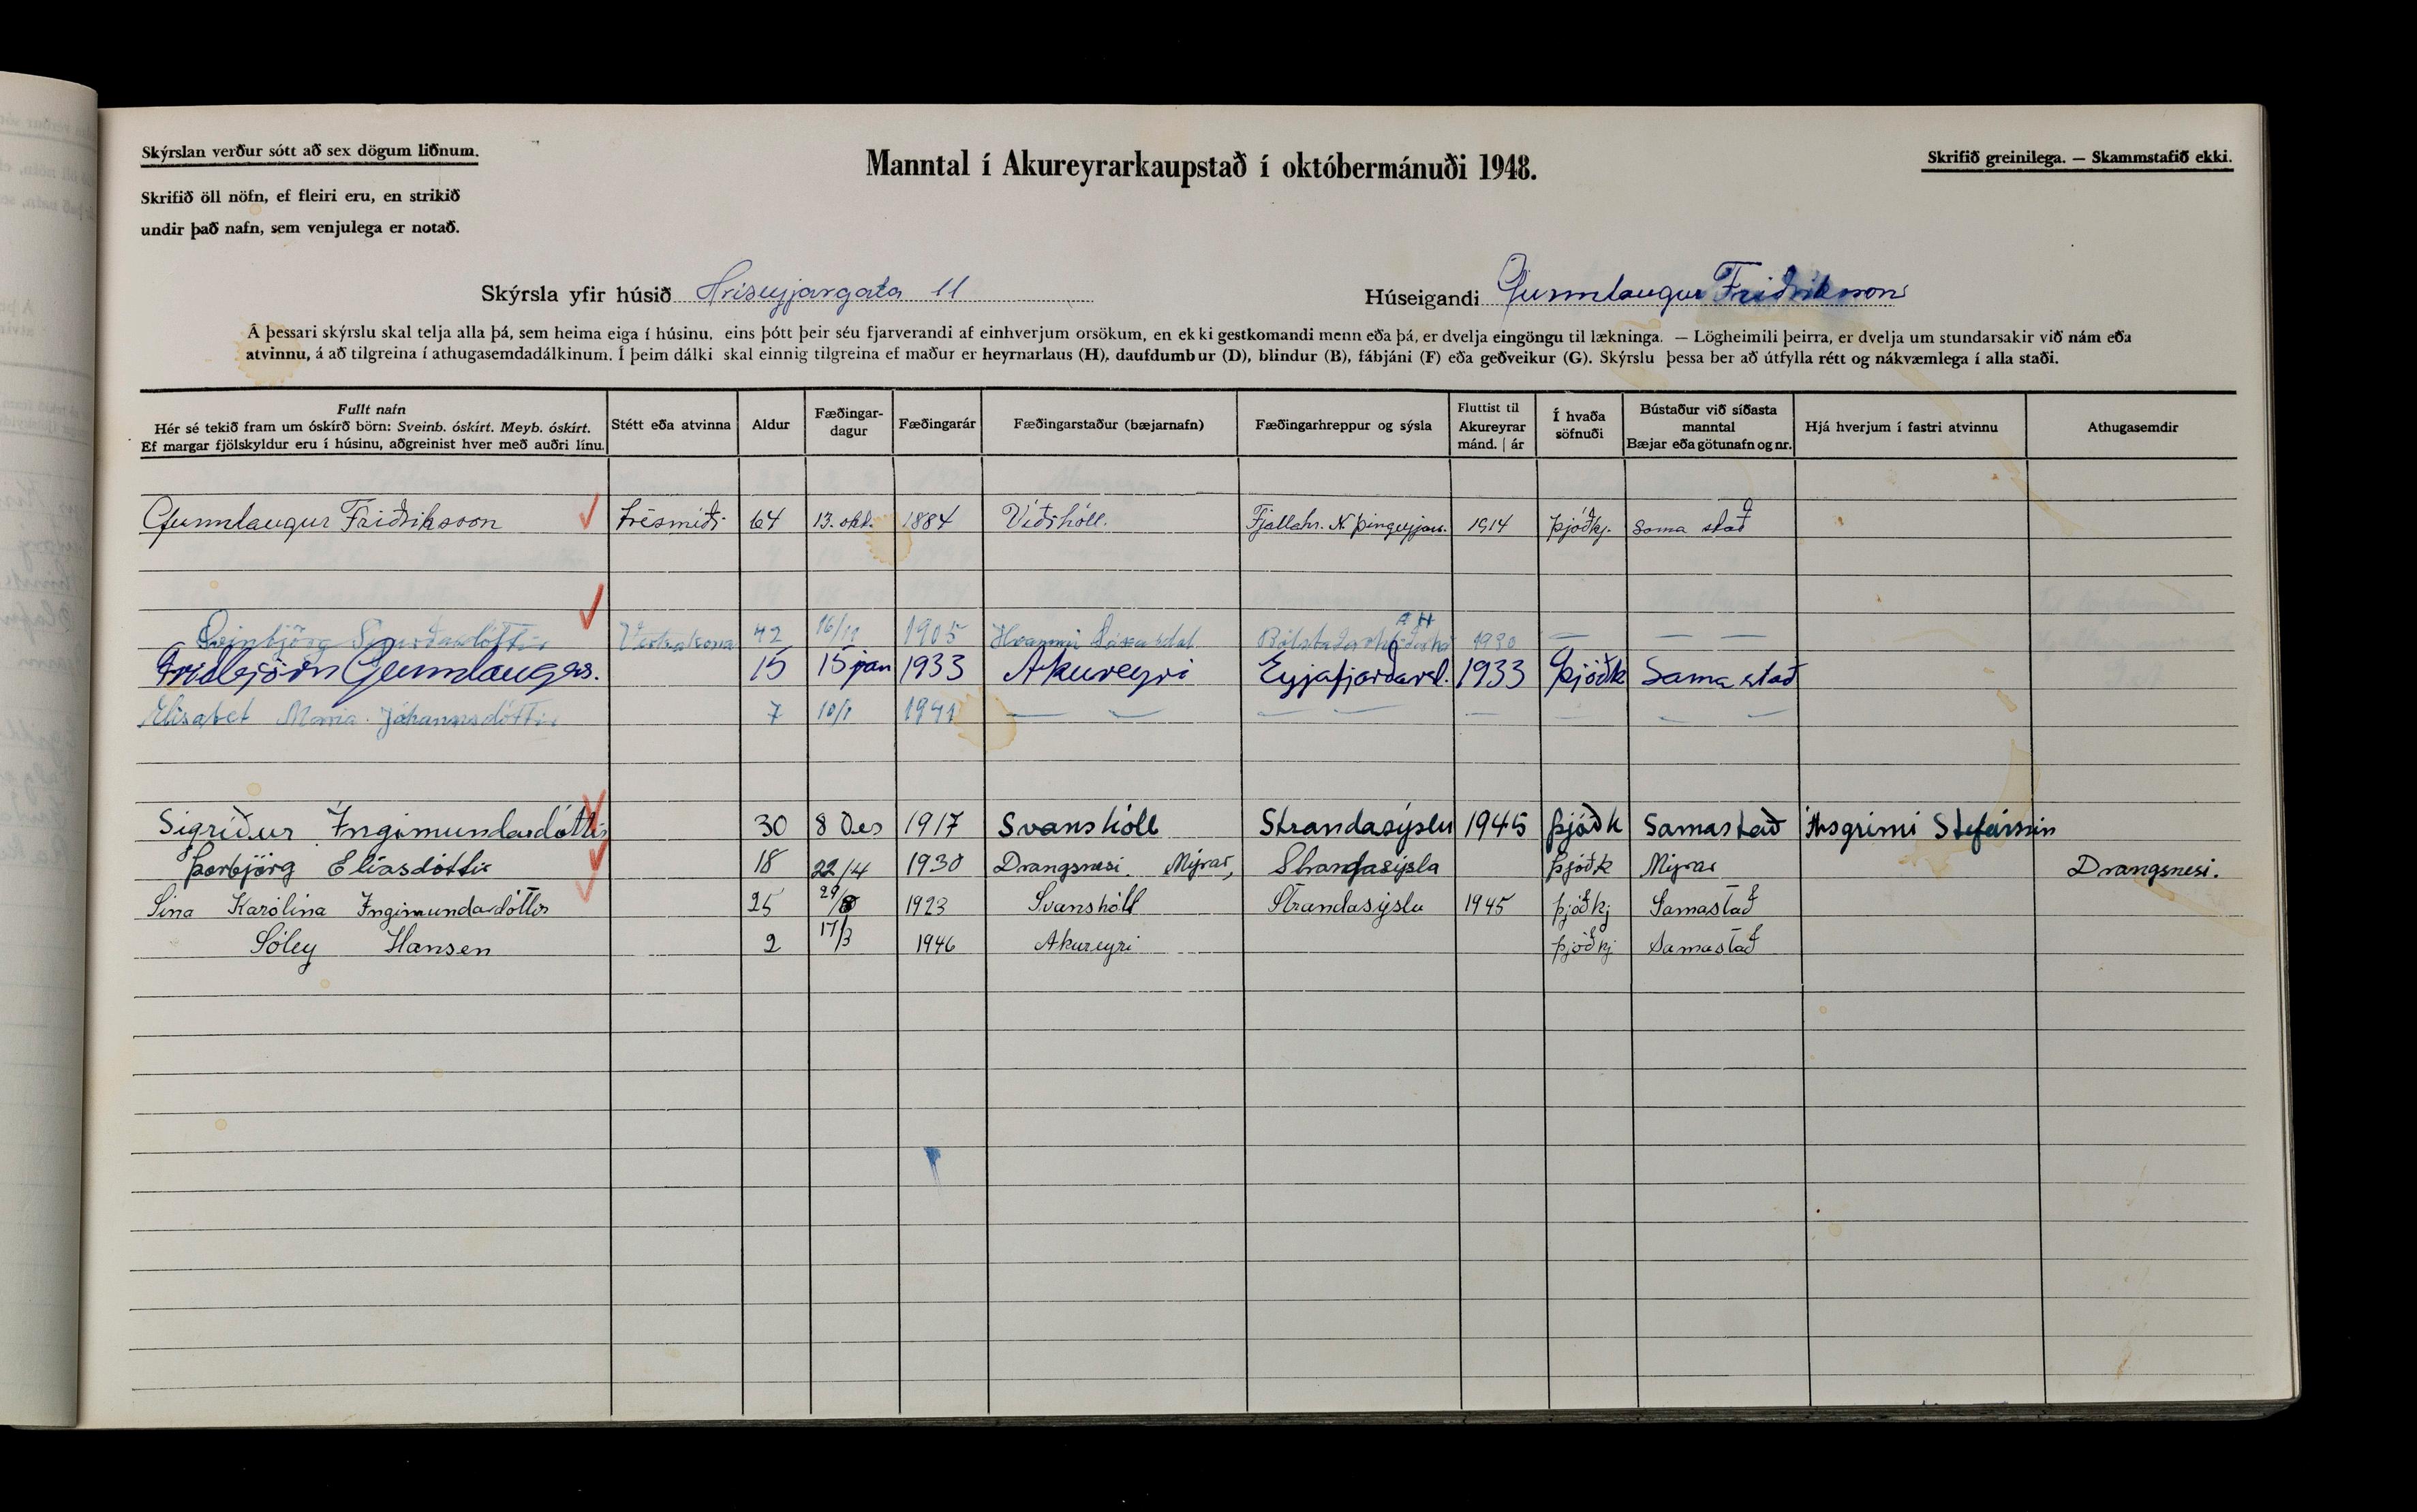 Skýrslan verður sótt að sex dögum liðnum.
Manntal í Akureyrarkaupstað í októbermánuði 1948.
Skrifið greinilega. — Skammstafið ekki.
Skrifið öll nöfn, ef fleiri eru, en strikið
undir það nafn, sem venjulega er notað.
Skýrsla yfir húsið Hríseyjargata 11
Húseigandi Gunnlaugur Friðriksson
Á þessari skýrslu skal telja alla þá, sem heima eiga í húsinu, eins þótt þeir séu fjarverandi af einhverjum orsökum, en ekki gestkomandi menn eða þá, er dvelja eingöngu til lækninga. — Lögheimili þeirra, er dvelja um stundarsakir við nám eða
atvinnu, á að tilgreina í athugasemdadálkinum. Í þeim dálki skal einnig tilgreina ef maður er heyrnarlaus (H), daufdumbur (D), blindur (B), fábjáni (F) eða geðveikur (G). Skýrslu þessa ber að útfylla rétt og nákvæmlega í alla staði.
Fullt nafn
Hér sé tekið fram um óskírð börn: Sveinb. óskírt. Meyb. óskírt.
Ef margar fjölskyldur eru í húsinu, aðgreinist hver með auðri línu.
Stétt eða atvinna
Aldur
Fæðingar-
dagur
Fæðingarár
Fæðingarstaður (bæjarnafn)
Fæðingarhreppur og sýsla
Fluttist til
Akureyrar
mánd. | ár
Í hvaða
söfnuði
Bústaður við síðasta
manntal
Bæjar eða götunafn og nr.
Hjá hverjum í fastri atvinnu
Athugasemdir
Gunnlaugur Friðriksson trésmiði 64 13. okt. 1884 Víðihóll. Fjallahr. N. Þingeyjars. 1914 Þjóðkj. Sama stað
A H
Sigurðardóttir Verkakona 42 16/11 1905 Hvammi Laxárdal 1930 — — —
Friðbjörn Gunnlaugss. 15 15 jan 1933 Akureyri Eyjafjarðars. 1933 Þjóðk Sama stað
Elísabet María Jóhannsdóttir 7 10/1 1941 — — — — — — — —
Sigríður Ingimundardóttir 30 8 Des 1917 Svanshóll Strandasýslu 1945 Þjóðk Samastað Ásgrími Stefánssin
Þorbjörg Elíasdóttir 18 22/4 1930 Drangsnesi. Mýrar, Strandasýsla Þjóðk Mýrar Drangsnesi.
Sína Karólína Ingimundardóttir 25 29/8 1923 Svanshóll Strandasýslu 1945 Þjóðkj Samastað
Sóley Hansen 2 17/3 1946 Akureyri Þjóðkj Samastað